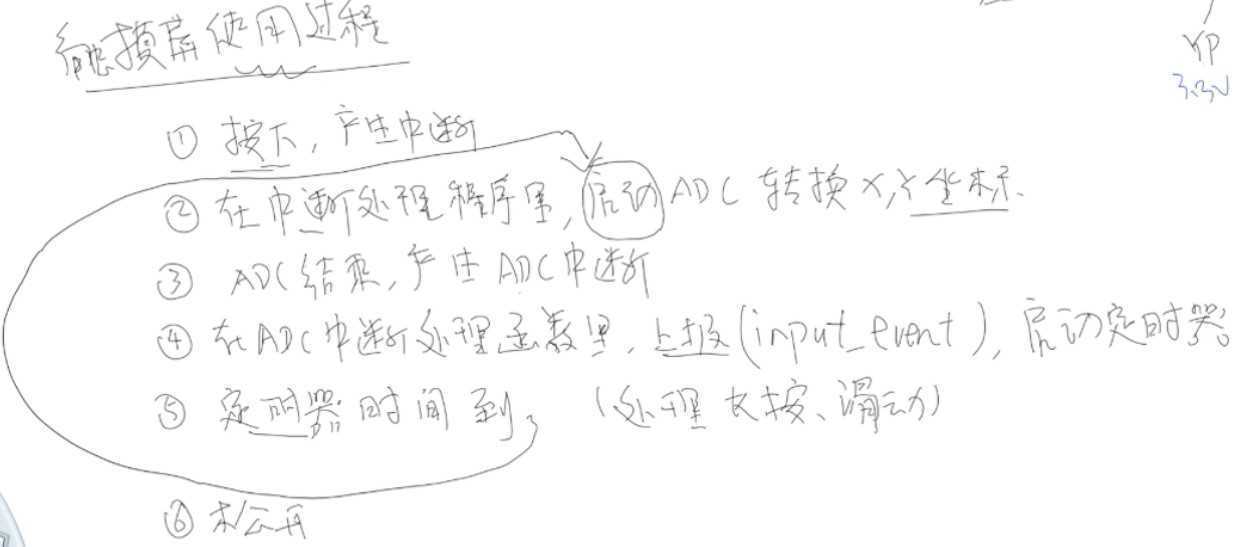 触摸屏使用过程
YP
3.3V
① 按下，产生中断
② 在中断处理程序里，启动ADC转换X,Y坐标.
③ ADC结束，产生ADC中断
④ 在ADC中断处理函数里，上报(input_event)，启动定时器
⑤ 定时器时间到，（处理长按、滑动）
⑥ 松开